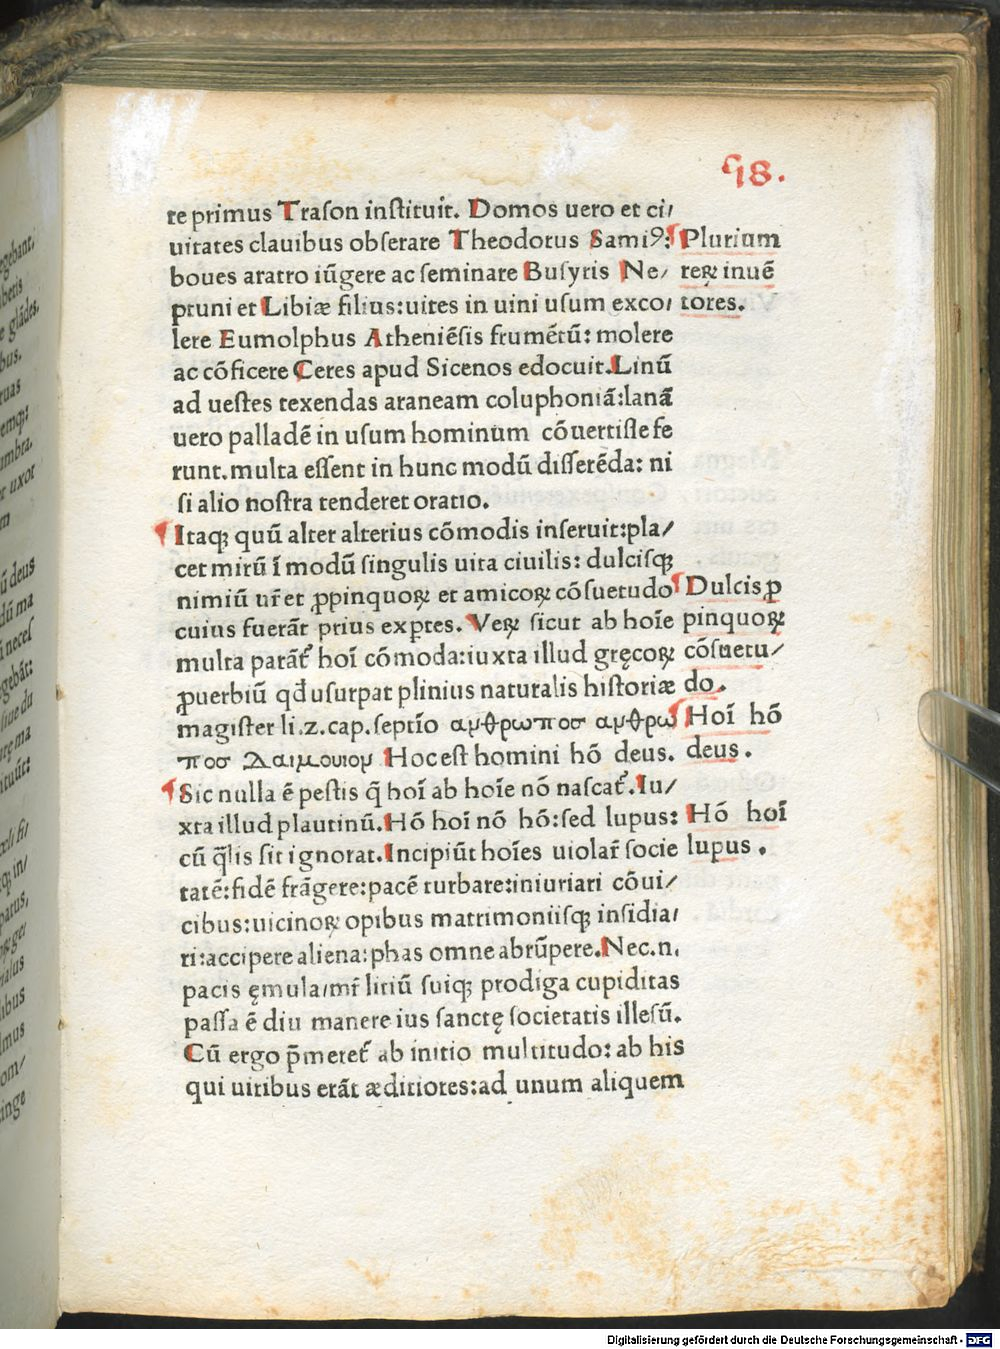 98.
te primus Trason instituit. Domos uero et ci/
uitates clauibus obserare Theodorus Samiꝰ:
boues aratro iũgere ac seminare Busyris Ne/
ptuni et Libiæ filius:uites in uini usum exco/
lere Eumolphus Atheniẽsis frumẽtũ: molere
ac cõficere Ceres apud Sicenos edocuit.Linũ
ad uestes texendas araneam coluphoniã:lanã
uero palladẽ in usum hominum cõuertisse fe
runt.multa essent in hunc modũ disserẽda: ni
si alio nostra tenderet oratio.
Plurium
reꝝ inuẽ
tores.
¶ Itaqꝫ quũ alter alterius cõmodis inseruit:pla/
cet mirũ ĩ modũ singulis uita ciuilis: dulcisqꝫ
nimiũ ur̃ et ꝓpinquoꝝ et amicoꝝ cõsuetudo
cuius fuerãt prius exꝑtes. Veꝝ sicut ab hoĩe
multa parãt᷑ hoĩ cõmoda:iuxta illud gręcoꝝ
ꝓuerbiũ qđ usurpat plinius naturalis historiæ
magister li.z.cap.septĩo ανθρωποσ ανθρω
ποσ Δαιμονιον Hoc est homini hõ deus.
¶ Dulcis ꝓ
pinquoꝝ
cõsuetu/
do.
¶ Hoĩ hõ
deus.
¶ Sic nulla ẽ pestis q̃ hoĩ ab hoĩe nõ nascat᷑.Iu/
xta illud plautinũ.Hõ hoĩ nõ hõ:sed lupus:
cũ q̃lis sit ignorat.Incipiũt hoĩes uiolar̃ socie
tatẽ:fidẽ frãgere:pacẽ turbare:iniuriari cõui/
cibus:uicinoꝝ opibus matrimoniisqꝫ insidia/
ri:accipere aliena:phas omne abrũpere.Nec.n.
pacis ęmula/mr̃ litiũ suiqꝫ prodiga cupiditas
passa ẽ diu manere ius sanctę societatis illesũ.
Cũ ergo p̃meret᷑ ab initio multitudo: ab his
qui uiribus erãt æditiores:ad unum aliquem
Hõ hoĩ
lupus.
Digitalisierung gefördert durch die Deutsche Forschungsgemeinschaft - DFG